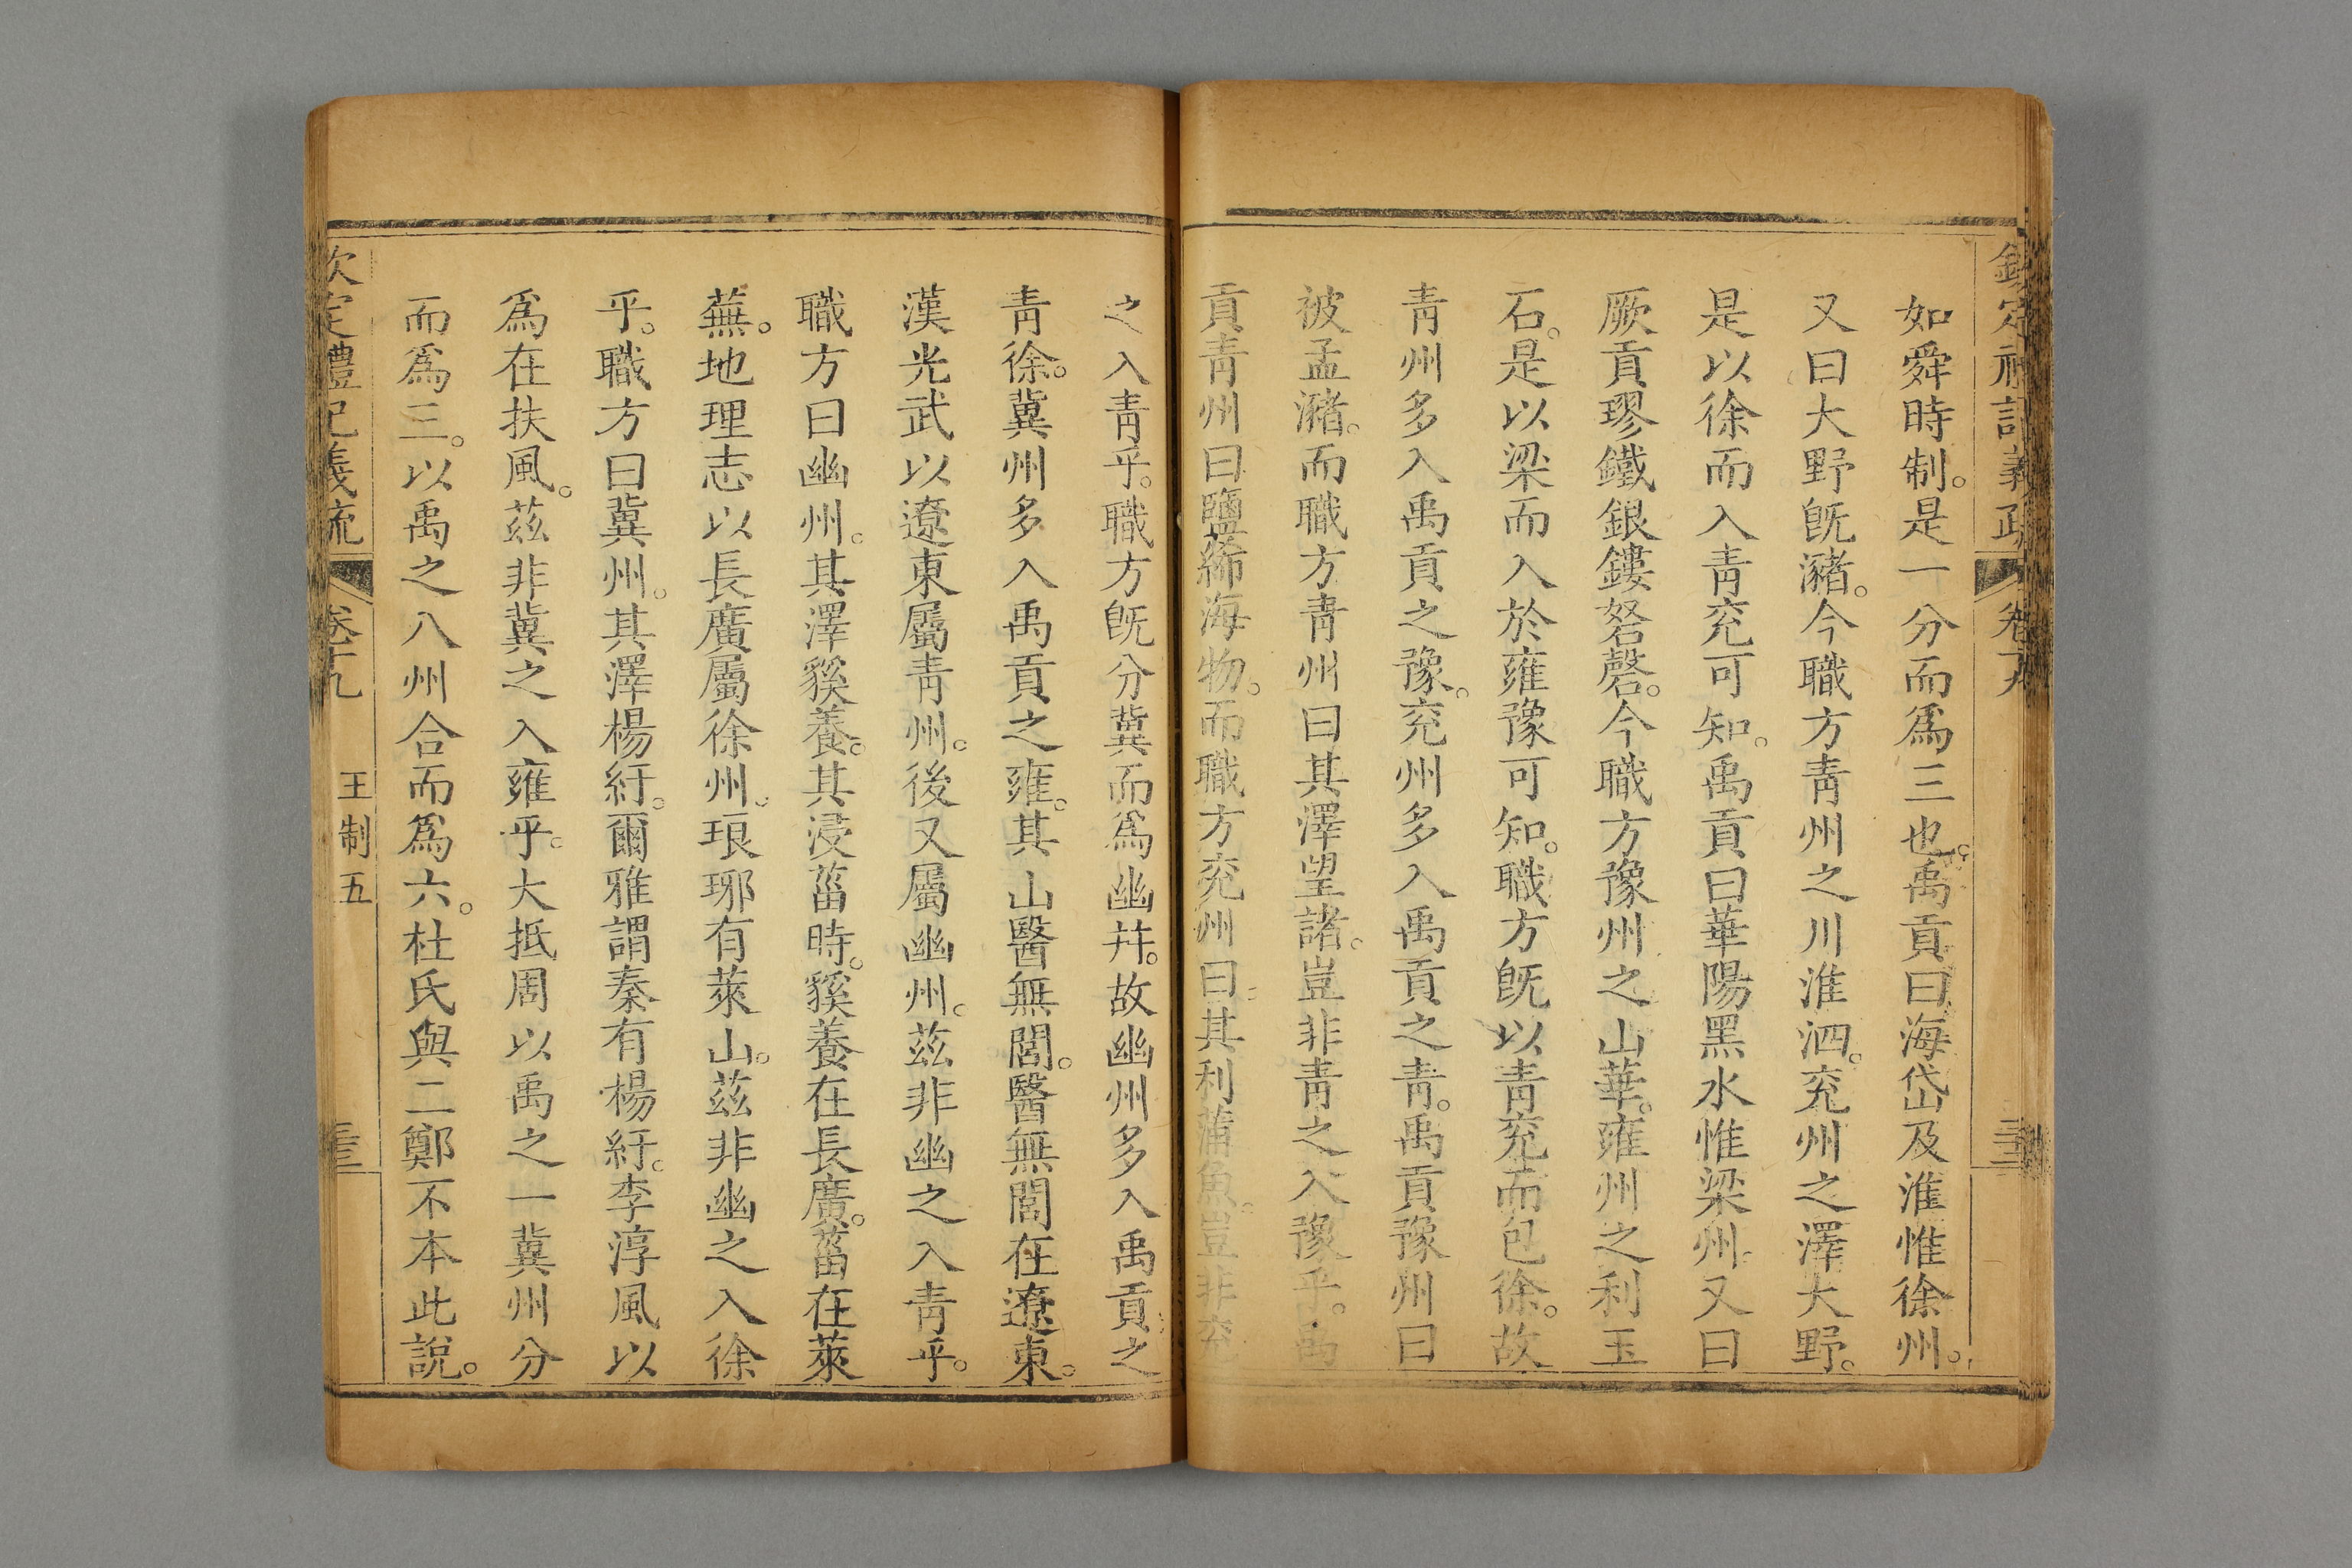 如舜時制。是一分而爲三也。禹貢曰海岱及淮惟徐州。
又曰大野旣瀦。今職方靑州之川淮泗。兖州之澤大野。
是以徐而入靑兖可知。禹貢曰華陽黑水惟梁州。又曰
厥貢璆鐵銀鏤砮磬。今職方豫州之山華。雍州之利玉
石。是以梁而入於雍豫可知。職方旣以靑兖而包徐。故
靑州多入禹貢之豫。兖州多入禹貢之靑。禹貢豫州曰
被孟瀦。而職方靑州曰其澤望諸。豈非靑之入豫乎。禹
貢靑州曰鹽絺海物。而職方兖州曰。其利蒲魚。豈非兖
之入靑乎。職方旣分冀而爲幽幷。故幽州多入禹貢之
靑徐。冀州多入禹貢之雍。其山醫無閭。醫無閭在遼東。
漢光武以遼東屬靑州。後又屬幽州。茲非幽之入靑乎。
職方曰幽州。其澤貕養。其浸菑時。貕養在長廣。菑在萊
蕪。地理志以長廣屬徐州。琅琊有萊山。茲非幽之入徐
乎。職方曰冀州。其澤楊紆。爾雅謂秦有楊紆。李淳風以
爲在扶風。茲非冀之入雍乎。大抵周以禹之一冀州分
而爲三。以禹之八州合而爲六。杜氏與二鄭不本此說。
欽定禮記義疏 卷十九 王制五